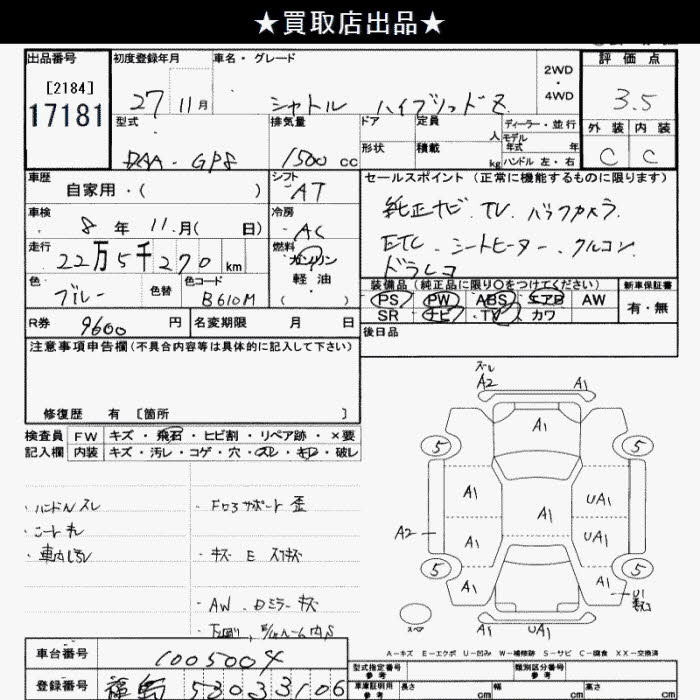 ★買取店出品★
出品番号 初度登録年月 車名・グレード 2WD・4WD 評価点
[2184]
17181
27 11月 シャトル ハイブリッドZ 3.5
型式 排気量 ドア 定員 人 ディーラー・並行 外装 内装
モデル年式 年
DAA-GP8 1500cc 形状 積載 kg ハンドル 左・右 C C
車歴 シフト セールスポイント(正常に機能するものに限ります)
自家用・( ) AT
純正ナビ、TV、バックカメラ
車検 冷房
8年 11月( 日) AC
ETC、シートヒーター、クルコン
走行 燃料
22万5千270km ガソリン
ドラレコ
軽油
( )
色 色替 色コード
ブルー B610M
装備品(純正品に限り○をつけてください) 新車保証書
PS PW ABS エアB AW 有・無
SR ナビ TV カワ
R券 9600円 名変期限 月 日
後日品
注意事項申告欄(不具合内容等は具体的に記入して下さい)
修復歴 有 [箇所 ]
検査員 FW キズ・飛石・ヒビ割・リペア跡・×要
記入欄 内装 キズ・汚レ・コゲ・穴・スレ・キレ・破レ
・ハンドルスレ
・シートキレ
・F ロアサポート 歪
・キズ E スリキズ
・AW、Dミラーキズ
スレ
A2 A1
A1
5 5
A1 A1 UA1
A2 A1 UA1
5 5
A1 A1 U1
スペア
A1 UA1
A-キズ E-エクボ U-凹み W-補修跡 S-サビ C-腐食 XX-交換済
車台番号 1005004
登録番号 福島 530 ふ 3106
型式指定番号 参考 類別区分番号 参考
車庫証明用 参考 長さ cm 幅 cm 高さ cm